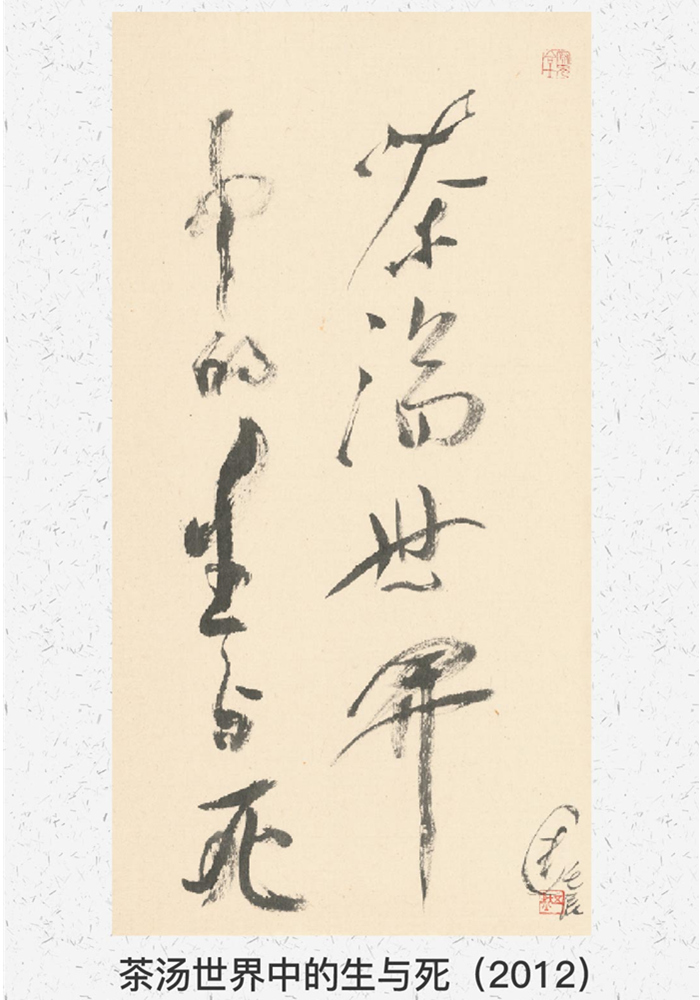 茶汤世界
中的生与死
茶汤世界中的生与死（2012）